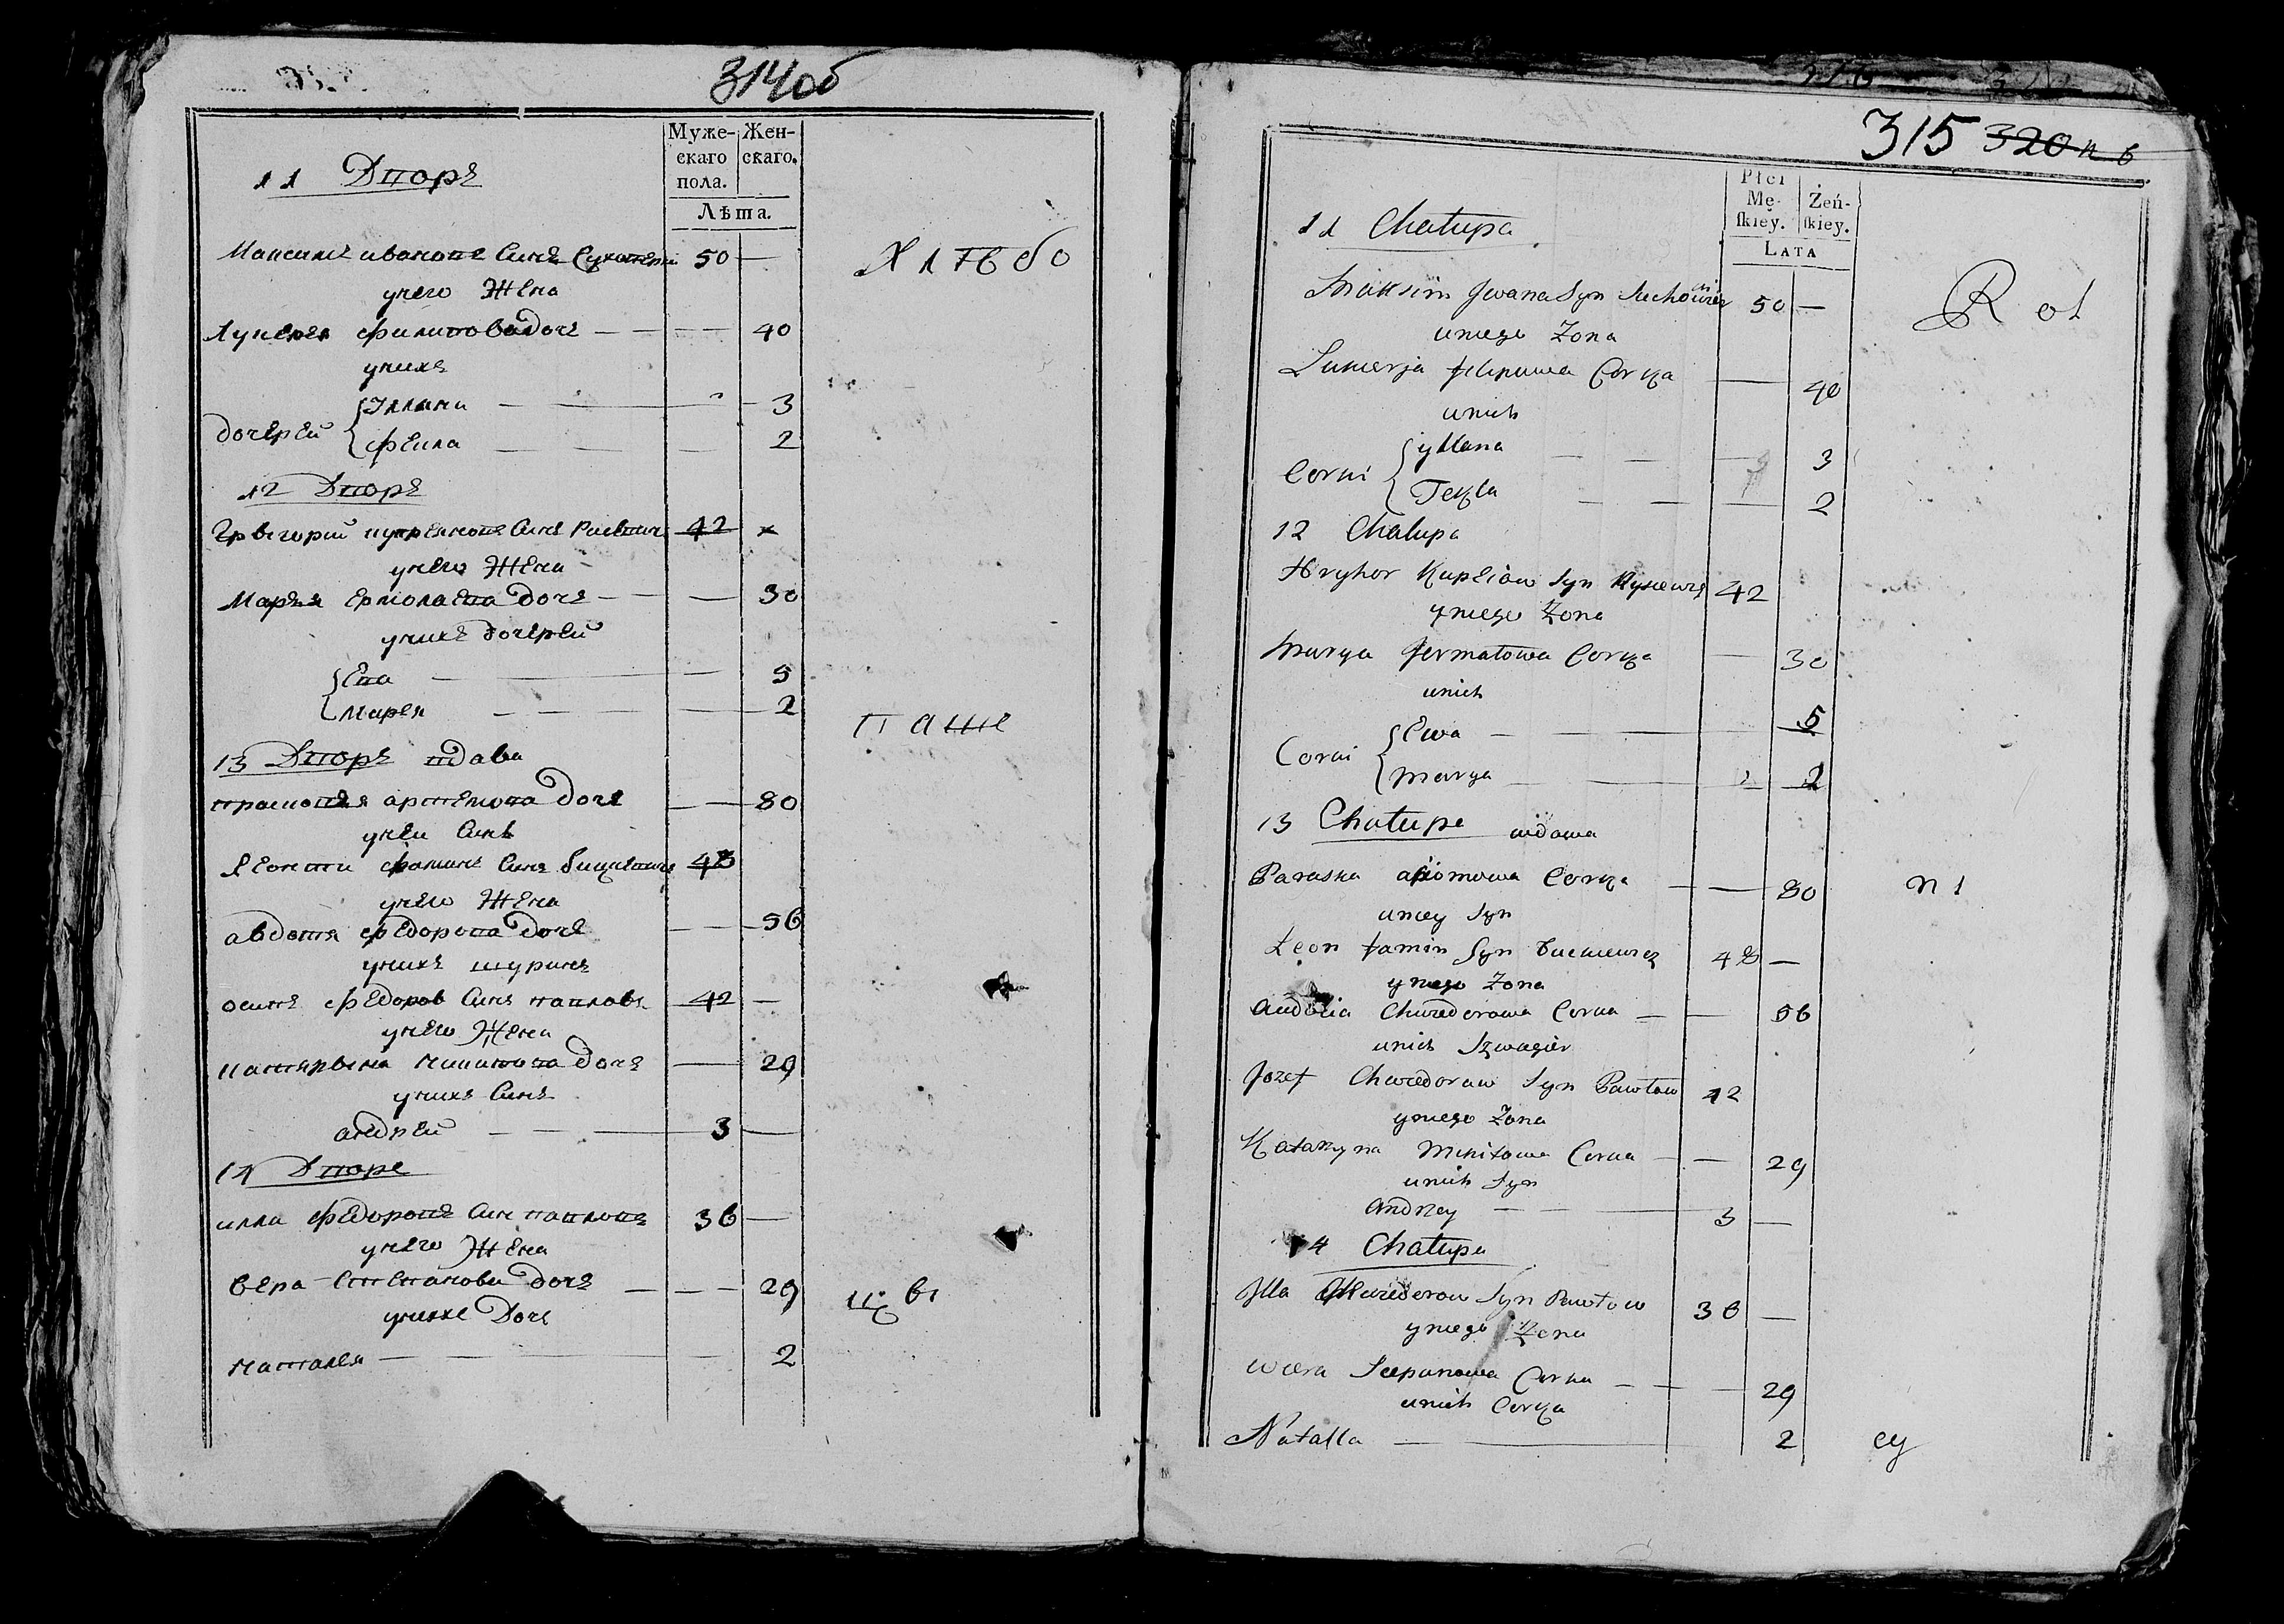 314об
Муже-скаго пола. Жен-скаго.
Лѣта.
11 Дворъ
Максимъ ивановъ Синъ 50 —
унего Жена
Лукеря филипова дочъ — 40
унихъ
дочерей
Улляна — 3
Фекла — 2
12 Дворъ
Грыгорий Синъ 42
унего Жена
Маръя ермолаева дочъ — 30
унихъ дочерей
Ева — 5
Маръя — 2
13 Дворъ вдава
прасковъя артемова дочъ — 80
уней Синъ
Леонти фаминъ Синъ 48
унего Жена
авдотя федорова дочъ — 56
унихъ шуринъ
осипъ федоров Синъ павловъ 42 —
унего Жена
катярына никитова дочъ — 29
унихъ Синъ
андрей — 3 —
14 Дворъ
илля федоровъ Синъ павловъ 36 —
унего Жена
вера степанова дочъ — 29
унихъ Дочъ
наталъя — 2
Хлѣбо
паше
цы
315 320 n 6
Płci Mę-skiey. Żeń-skiey.
LATA
11 Chałupa
Maksim Jwana Syn 50 —
uniego Zona
Lukierja filipowa Corka — 40
unich
Corki
ylłana — 3
Tekla — 2
12 Chalupa
Hryhor Syn 42
yniego Zona
Marya Jermałowa Corka — 30
unich
Corki
Ewa — 5
Marya — 2
13 Chałupa wdowa
Paraska artiomowa Corka — 80
uniey Syn
Leon famin Syn 48 —
yniego Zona
audocia Chwiedorowa Corka — 56
unich Szwagier
Jozef Chwiedorow Syn Pawłow 42
yniego Zona
Katarzyna Mikitowa Corka — 29
unich Syn
Andrzey — 3 —
14 Chałupa
Jlla Chwiedorow Syn Pawłow 36 —
yniego Zona
Wiera Sciepanowa Corka — 29
unich Corka
Natalla — 2
Rol
ni
cy